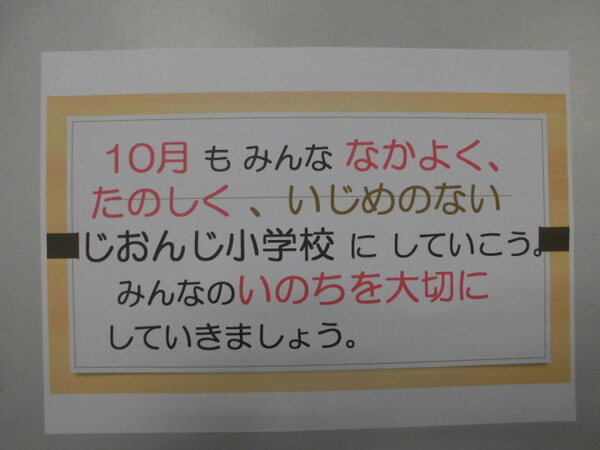 10月 も みんな なかよく、
たのしく 、いじめのない
じおんじ小学校 に していこう。
みんなのいのちを大切に
していきましょう。